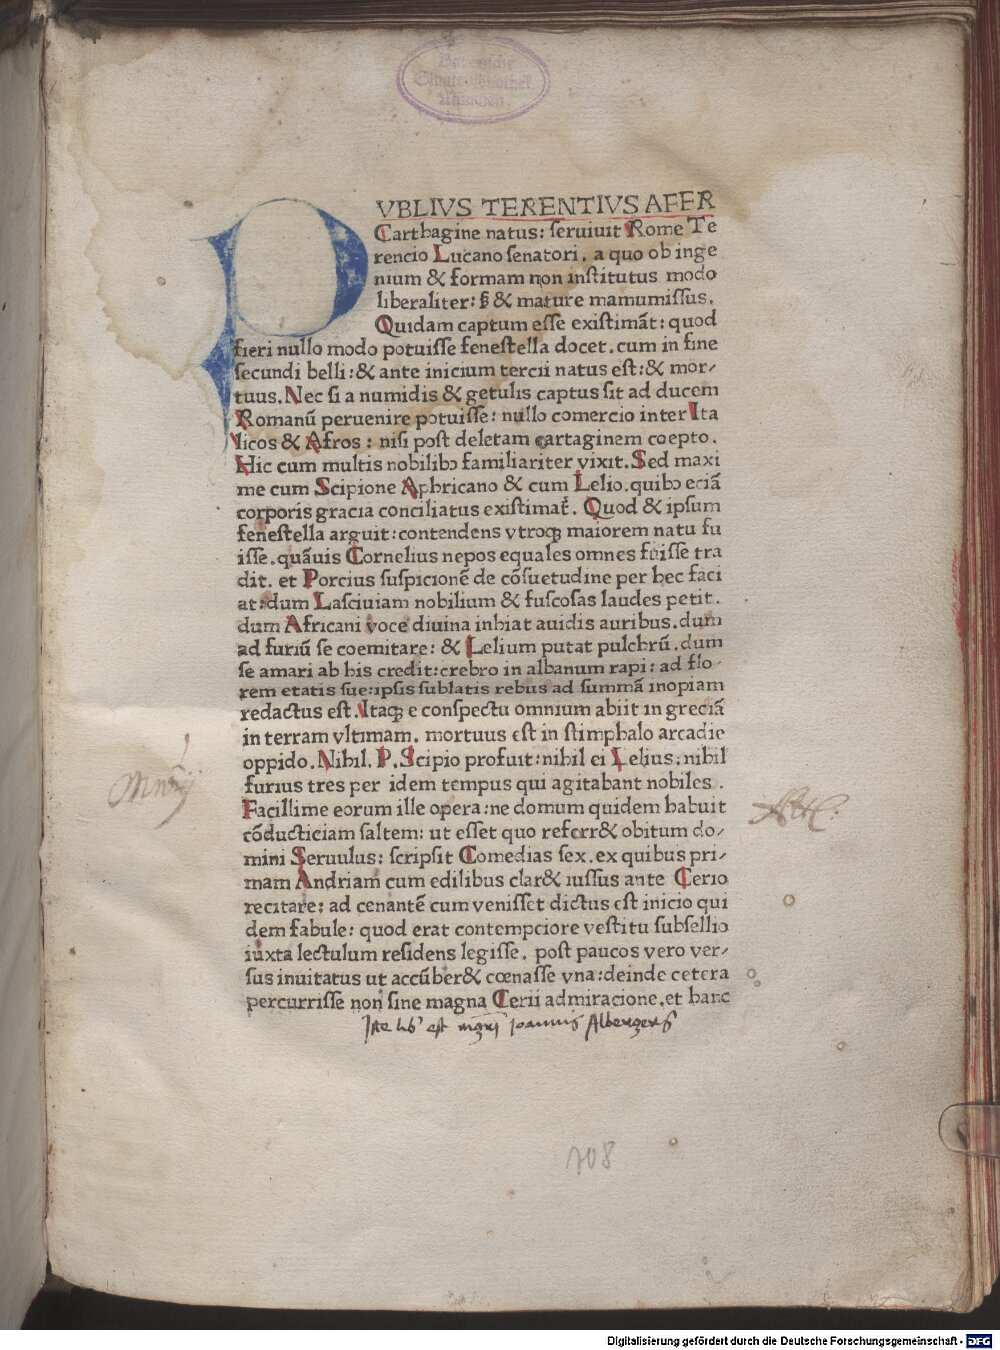 Bayerische
Staatsbibliothek
München
PVBLIVS TERENTIVS AFER
Carthagine natus: seruiuit Rome Te
rencio Lucano senatori, a quo ob inge
nium & formam non institutus modo
liberaliter: ꝫ & mature mamumissus.
Quidam captum esse existimãt: quod
fieri nullo modo potuisse fenestella docet. cum in fine
secundi belli: & ante inicium tercii natus est: & mor/
tuus. Nec si a numidis & getulis captus sit ad ducem
Romanũ peruenire potuisse: nullo comercio inter Ita
licos & Afros : nisi post deletam cartaginem coepto.
Hic cum multis nobilibꝫ familiariter vixit. Sed maxi
me cum Scipione Aphricano & cum Lelio. quibꝫ eciã
corporis gracia conciliatus existimat᷒. Quod & ipsum
fenestella arguit: contendens vtroqꝫ maiorem natu fu
isse. quãuis Cornelius nepos equales omnes fuisse tra
dit. et Porcius suspicionẽ de cõsuetudine per hec faci
at: dum Lasciuiam nobilium & fuscosas laudes petit.
dum Africani voce diuina inhiat auidis auribus. dum
ad furiũ se coemitare: & Lelium putat pulchrũ. dum
se amari ab his credit: crebro in albanum rapi: ad flo-
rem etatis sue: ipsis sublatis rebus ad summã inopiam
redactus est. Itaqꝫ e conspectu omnium abiit in greciã
in terram vltimam. mortuus est in stimphalo arcadie
oppido. Nihil. P. Scipio profuit: nihil ei Lelius: nihil
furius tres per idem tempus qui agitabant nobiles .
Facillime eorum ille opera: ne domum quidem habuit
cõducticiam saltem: ut esset quo referr& obitum do/
mini Seruulus: scripsit Comedias sex. ex quibus pri/
mam Andriam cum edilibus clar& iussus ante Cerio
recitare: ad cenantẽ cum venisset dictus est inicio qui
dem fabule: quod erat contempciore vestitu subsellio
iuxta lectulum residens legisse. post paucos vero ver/
sus inuitatus ut accũber& cœnasse vna: deinde cetera
percurrisse non sine magna Cerii admiracione. et hanc
Iste lib᷒ est mgri Joannis Albergers
108
Digitalisierung gefördert durch die Deutsche Forschungsgemeinschaft - DFG